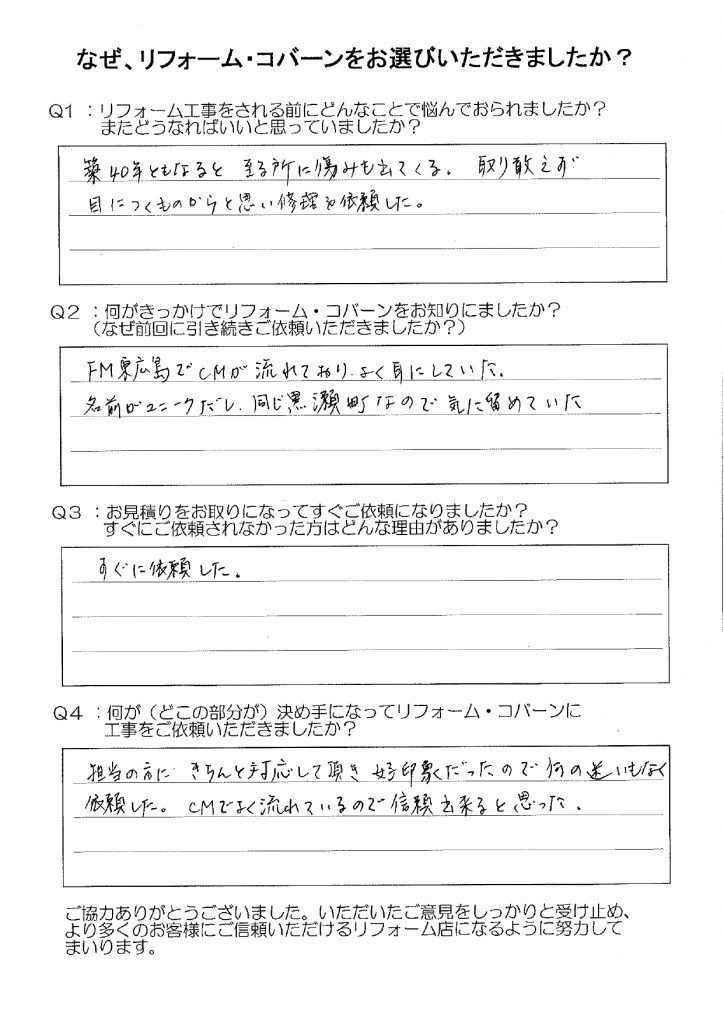 なぜ、リフォーム・コバーンをお選びいただきましたか？
Q1 ：リフォーム工事をされる前にどんなことで悩んでおられましたか？
またどうなればいいと思っていましたか？
築40年ともなると 至る所に傷みも出てくる。 取り敢えず
目につくものからと思い修理を依頼した。
Q2 ：何がきっかけでリフォーム・コバーンをお知りにましたか？
（なぜ前回に引き続きご依頼いただきましたか？）
FM東広島でCMが流れており、よく耳にしていた。
名前がユニークだし、同じ黒瀬町なので気に留めていた
Q3 ：お見積りをお取りになってすぐご依頼になりましたか？
すぐにご依頼されなかった方はどんな理由がありましたか？
すぐに依頼した。
Q4 ：何が（どこの部分が）決め手になってリフォーム・コバーンに
工事をご依頼いただきましたか？
担当の方に きちんと対応して頂き 好印象だったので何の迷いもなく
依頼した。CMでよく流れているので信頼出来ると思った。
ご協力ありがとうございました。いただいたご意見をしっかりと受け止め、
より多くのお客様にご信頼いただけるリフォーム店になるように努力して
まいります。